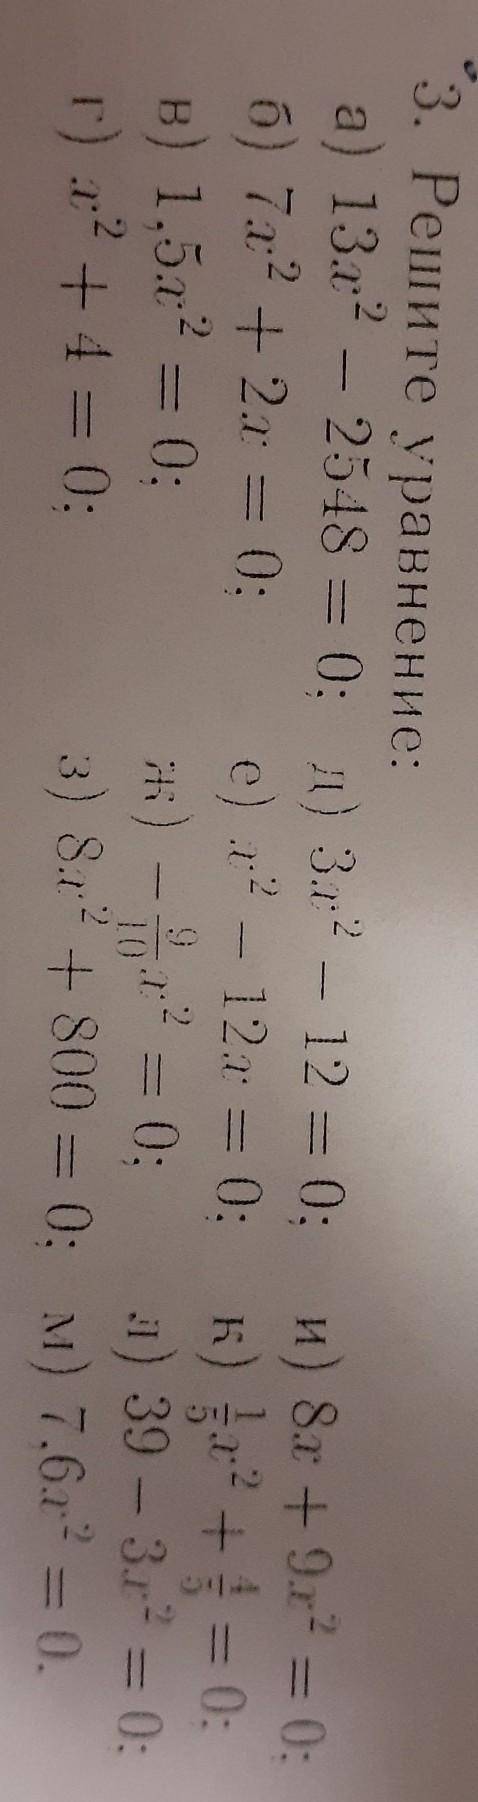 3. Решите уравнение:
а) 13x² − 2548 = 0; д) 3x² − 12 = 0; и) 8x + 9x² = 0;
б) 7x² + 2x = 0; е) x² − 12x = 0; к) 1/5x² + 4/5 = 0;
в) 1,5x² = 0; ж) −9/10x² = 0; л) 39 − 3x² = 0;
г) x² + 4 = 0; з) 8x² + 800 = 0; м) 7,6x² = 0.